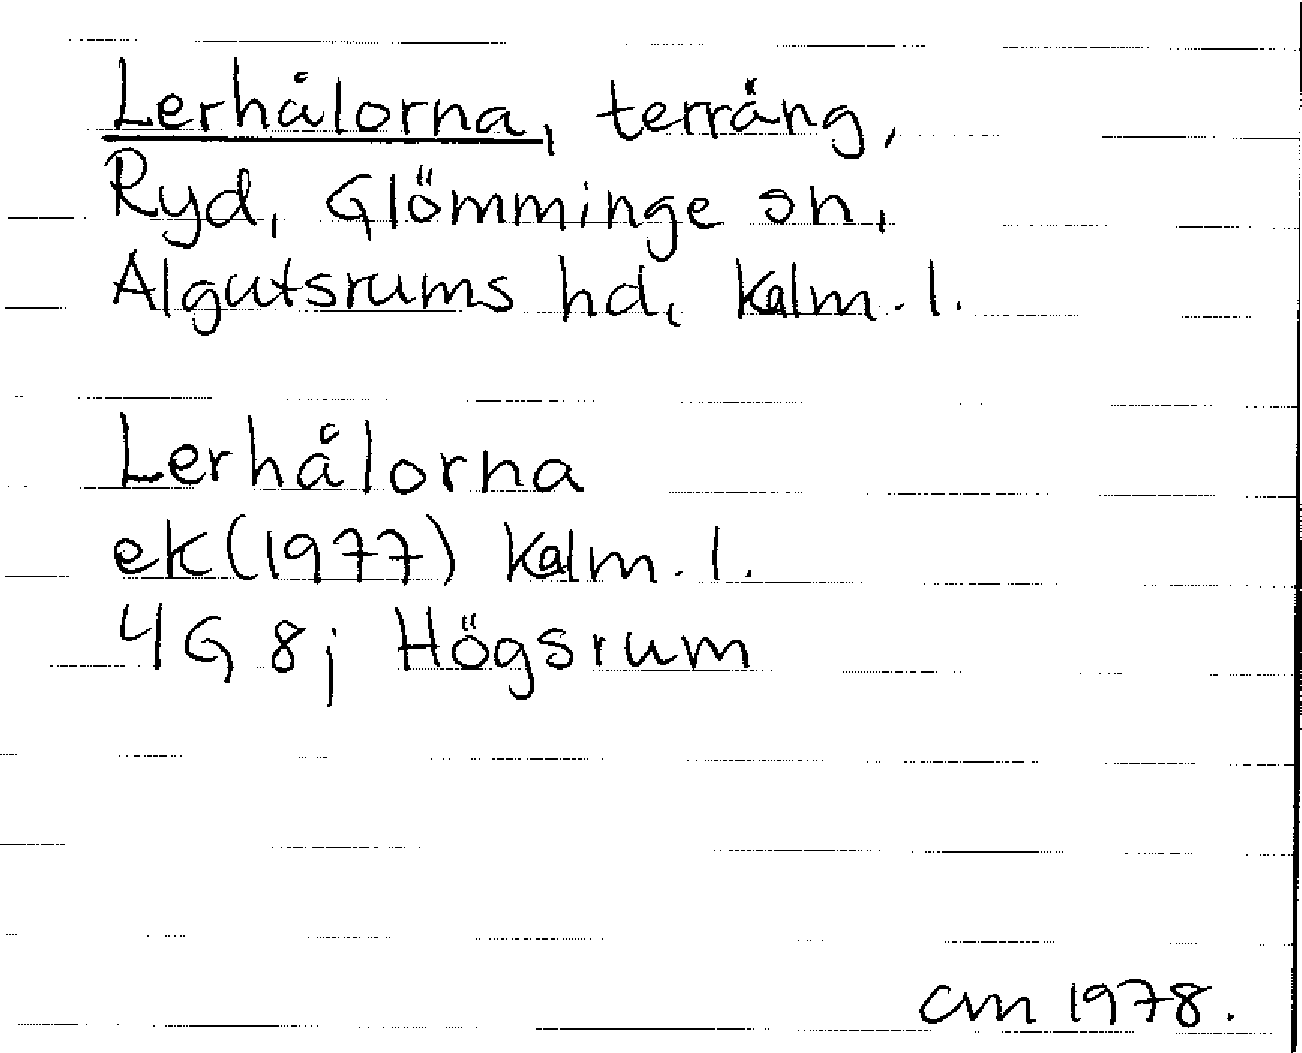 Lerhålorna, terräng,
Ryd, Glömminge sn,
Algutsrums hd, Kalm. l.
Lerhålorna
ek (1977) Kalm. l.
4G 8j Högsrum
cm 1978.